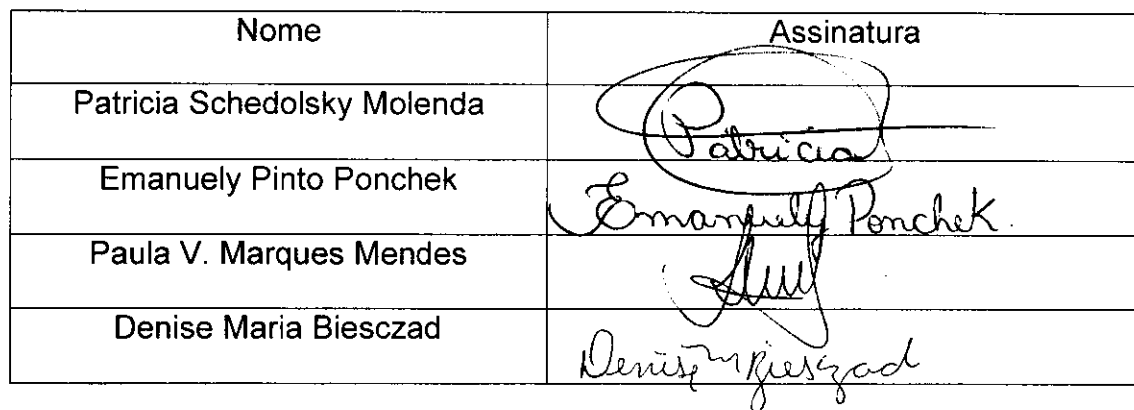 Nome Assinatura
Patricia Schedolsky Molenda Patricia
Emanuely Pinto Ponchek Emanuely Ponchek.
Paula V. Marques Mendes
Denise Maria Biesczad Denise M Biesczad